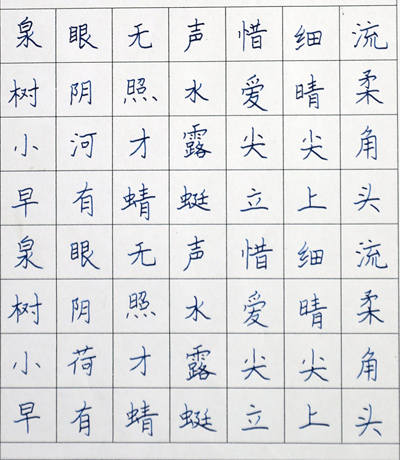 泉眼无声惜细流
树阴照水爱晴柔
小河才露尖尖角
早有蜻蜓立上头
泉眼无声惜细流
树阴照水爱晴柔
小荷才露尖尖角
早有蜻蜓立上头